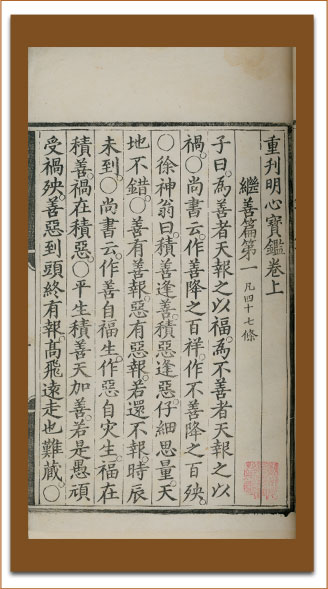 重刊明心寶鑑卷上
繼善篇第一 凡四十七條
子曰。爲善者天報之以福。爲不善者天報之以
禍。○尚書云。作善降之百祥。作不善降之百殃。
○徐神翁曰。積善逢善。積惡逢惡。仔細思量。天
地不錯。○善有善報。惡有惡報。若還不報。時辰
未到。○尚書云。作善自福生。作惡自灾生。福在
積善。禍在積惡。○平生積善天加善。若是愚頑
受禍殃。善惡到頭終有報。高飛遠走也難藏。○